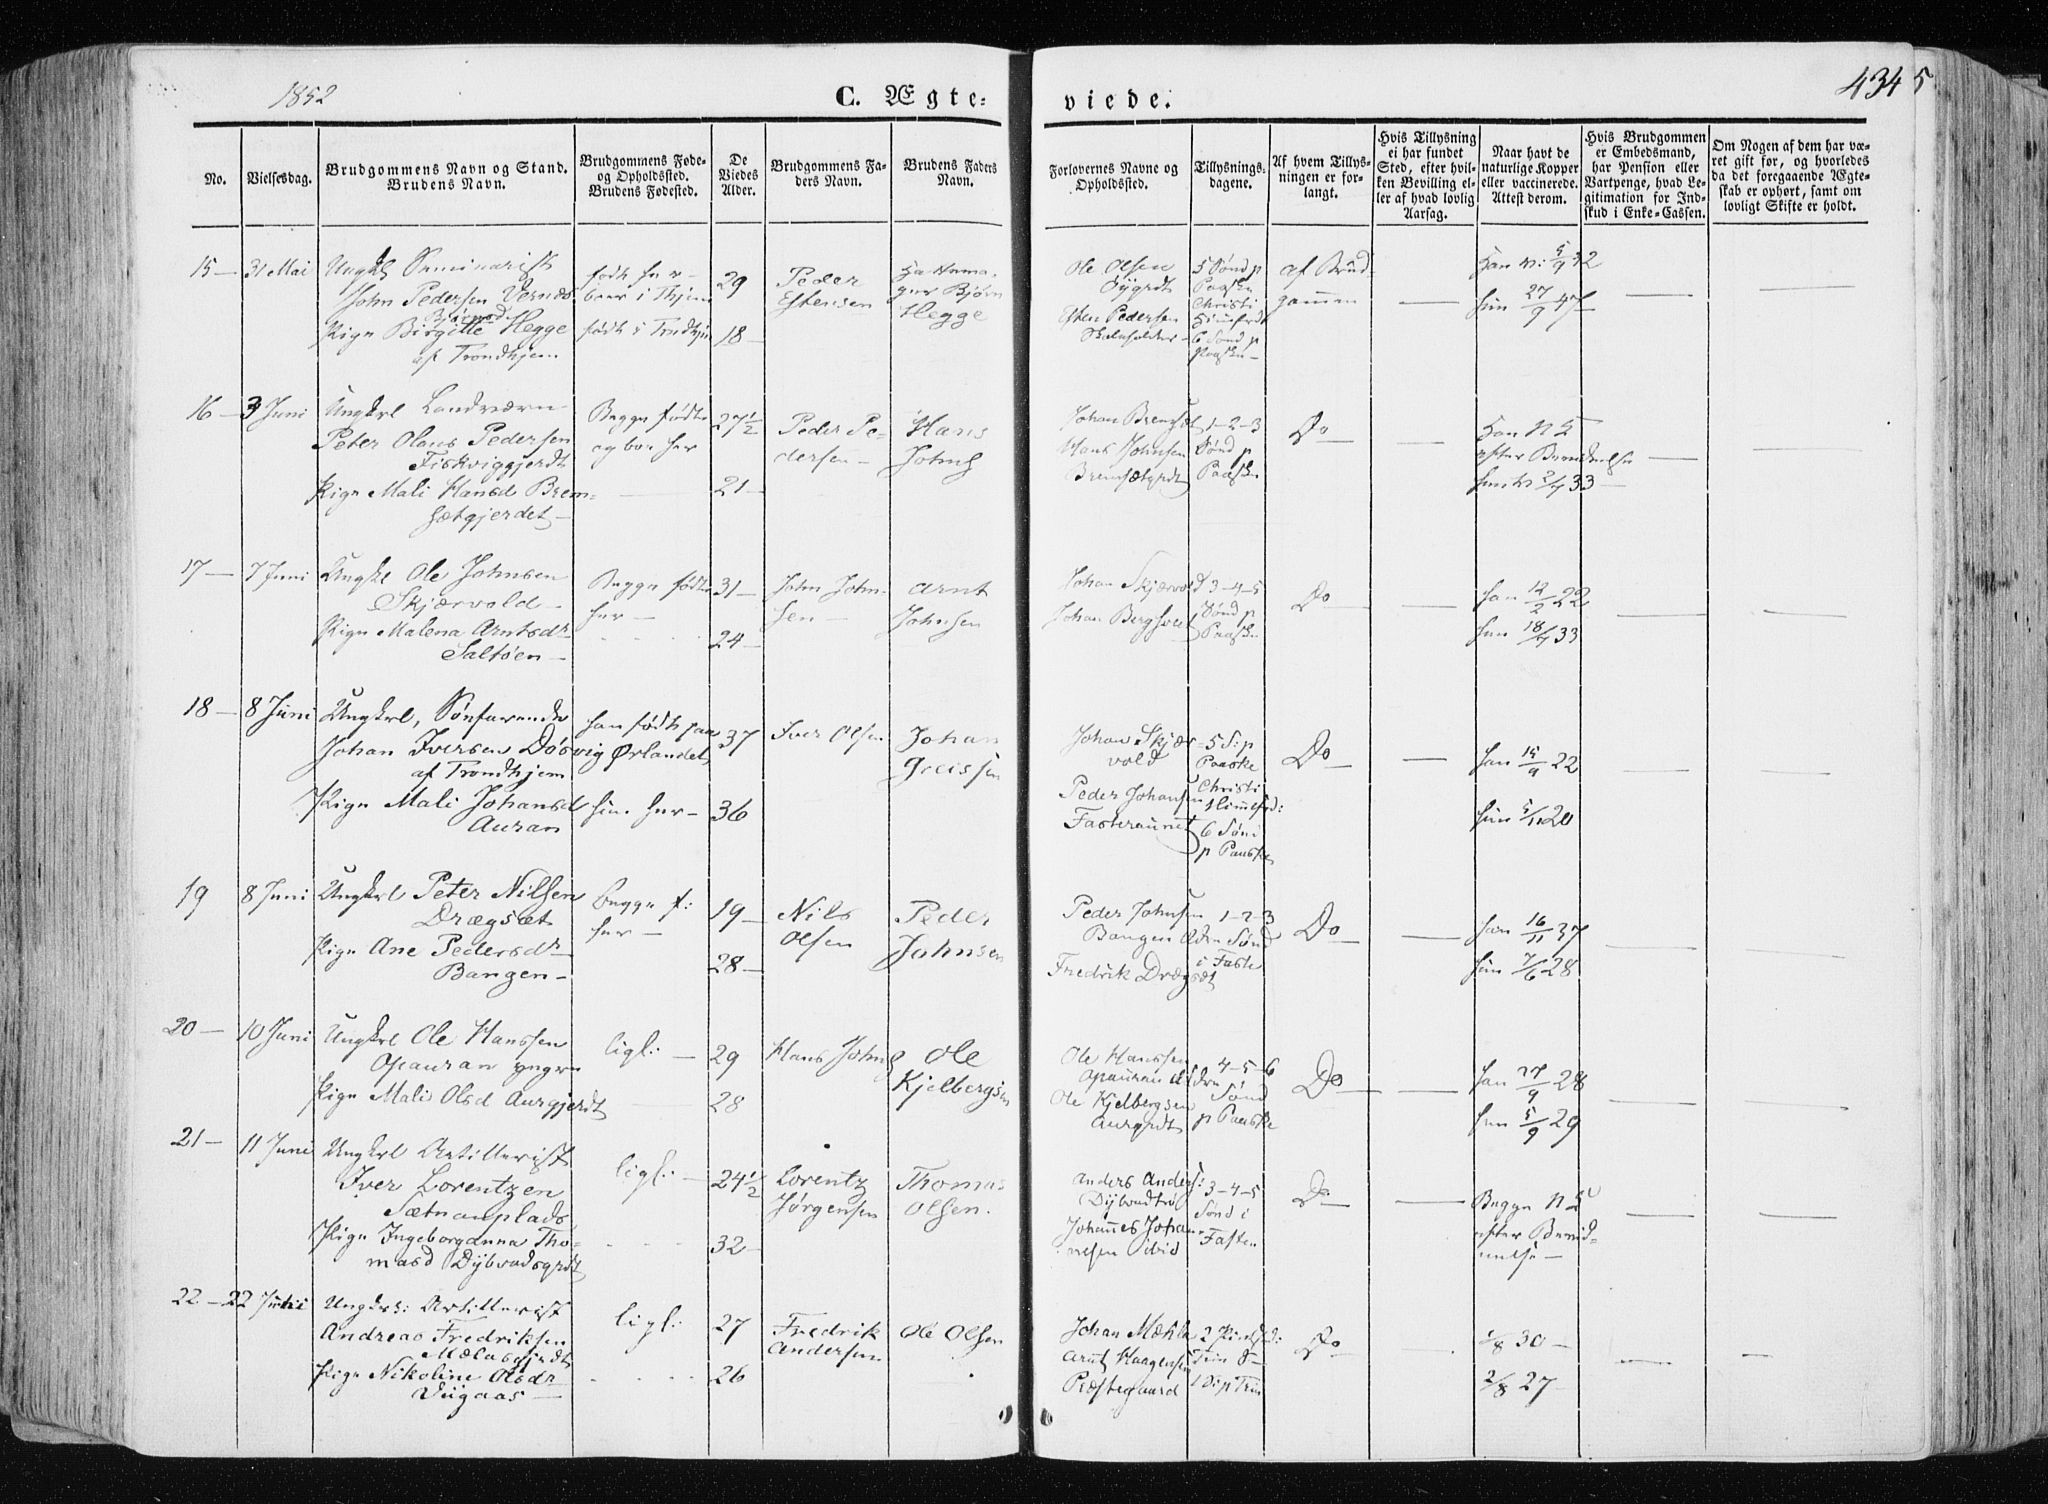 1852
C. Ægte-
viede.
434 5
No.
Vielsesdag.
Brudgommens Navn og Stand.
Brudens Navn.
Brudgommens Føde-
og Opholdssted.
Brudens Fødested.
De
Viedes
Alder.
Brudgommens Fa-
ders Navn.
Brudens Faders
Navn.
Forlovernes Navne og
Opholdssted.
Tillysnings-
dagene.
Af hvem Tillys-
ningen er for-
langt.
Hvis Tillysning
ei har fundet
Sted, efter hvil-
ken Bevilling el-
ler af hvad lovlig
Aarsag.
Naar havt de
naturlige Kopper
eller vaccinerede.
Attest derom.
Hvis Brudgommen
er Embedsmand,
har Pension eller
Vartpenge, hvad Le-
gitimation for Ind-
skud i Enke-Cassen.
Om Nogen af dem har væ-
ret gift før, og hvorledes
da det foregaaende Ægte-
skab er ophørt, samt om
lovligt Skifte er holdt.
15 — 31 Mai
Ungkl Seminarist
John Pedersen Vernæs
Bjørnsd
Pige Birgitte Hegge
af Trondhjem
født her
boer i Thjem
født i Trndhjm
29
18 —
Peder
Estensen
Bjørn
Hegge
Ole Olsen
Esten Pedersen
Skoleholder
5 Sønd p
Paaske
Christi
Himlfrdt
6 Sønd p
Paaske —
af Brud-
gommen
Han v: 5/9 32
Hun 27/9 47
16 — 3 Juni
Ungkrl Landværn
Peter Olaus Pedersen
Fiskviggjerdt
Pige Mali Hansd Brem-
sætgjerdet —
Begge fødte
og boe her
27½
21 —
Peder Pe-
dersen —
Hans
Johns
Johan Bremsæt
Hans Johnsen
Bremsætgrdt
1-2-3
Sønd p
Paaske
Do
Han N E
efter Beredvelse
hun v 2/7 33 —
17 — 7 Juni
Ungkl Ole Johnsen
Skjærvold —
Pige Malena Arntsdr
Saltøen —
Begge fødte
her —
31 —
24 —
John John-
sen —
Arnt
Johnsen
Johan Skjærvold
Johan Bergsvee
3-4-5
Sønd p
Paaske
Do
han 12/2 22
hun 18/7 33
18 — 8 Juni
Ungkrl, Sønfarende
Johan Iversen Døsvig
af Trondhjem
Pige Mali Johansd
Auran
han født paa
Ørlandet
hun her —
37
36
Iver Olsen
Johan
Greissen
Johan Skjær-
vold
Peder Johansen
Fasteraunet
5 S: p
Paaske
Christi
Himelfrd:
6 Søn:
p Paaske
Do
han 15/9 22
hun 5/11 20
19 8 Juni
Ungkrl Peter Nilsen
Drægsæt
Pige Ane Pedersdr
Bangen —
begge f:
her —
19 —
28 —
Nils
Olsen
Peder
Johnsen
Peder Johnsen
Bangen
Fredrik Drægsæt
1-2-3
Sønd
i Faste
Do
han 16/11 37
hun 7/6 28
20 — 10 Juni
Ungkrl Ole Hanssen
Opauran yngre
Pige Mali Olsd Aurgjerdt
ligl: —
29
28
Hans Johns
Ole
Kjelbergsen
Ole Hanssen
Opauran Eldre
Ole Kjelbergsen
Aurgrdt
4-5-6
Sønd
p Paaske
Do
han 27/9 28
hun 5/9 29
21 — 11 Juni
Ungkrl Artillerist
Iver Lorentzen
Sætnanplads
Pige Ingeborganna Tho-
masd Dybvadsgrdt
ligl: —
24½
32 —
Lorentz
Jørgensen
Thomas
Olsen.
Anders Anders:
Johannes Johan-
nesen ibid
3-4-5
Sønd i
Fasten
Do
Begge N E
efter
22 — 22 Juni
Ungkrl: Artillerist
Andreas Fredriksen
Mælasgjerdt
Pige Nikoline Olsdr
Viigaas —
ligl:
27
26
Fredrik
Andersen
Ole Olsen
Johan Mæhla
Arnt Haagensen
Præstegaard
2 Pintsd:
Trin S —
1 S: p Trin
Do
1/8 30 —
2/8 27 —